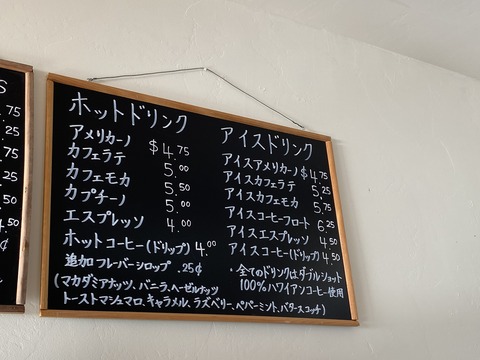 ホットドリンク
アメリカーノ $4.75
カフェラテ 5.00
カフェモカ 5.50
カプチーノ 5.00
エスプレッソ 4.00
ホットコーヒー(ドリップ) 4.00
追加フレーバーシロップ .25¢
(マカダミアナッツ、バニラ、ヘーゼルナッツ
トーストマシュマロ、キャラメル、ラズベリー、ペパーミント、バタースコッチ)
アイスドリンク
アイスアメリカーノ $4.75
アイスカフェラテ 5.25
アイスカフェモカ 5.75
アイスコーヒーフロート 6.25
アイスエスプレッソ 4.50
アイスコーヒー(ドリップ) 4.50
・全てのドリンクはダブルショット
100%ハワイアンコーヒー使用
S
.75
.25
.75
.25
.50
.50
¢